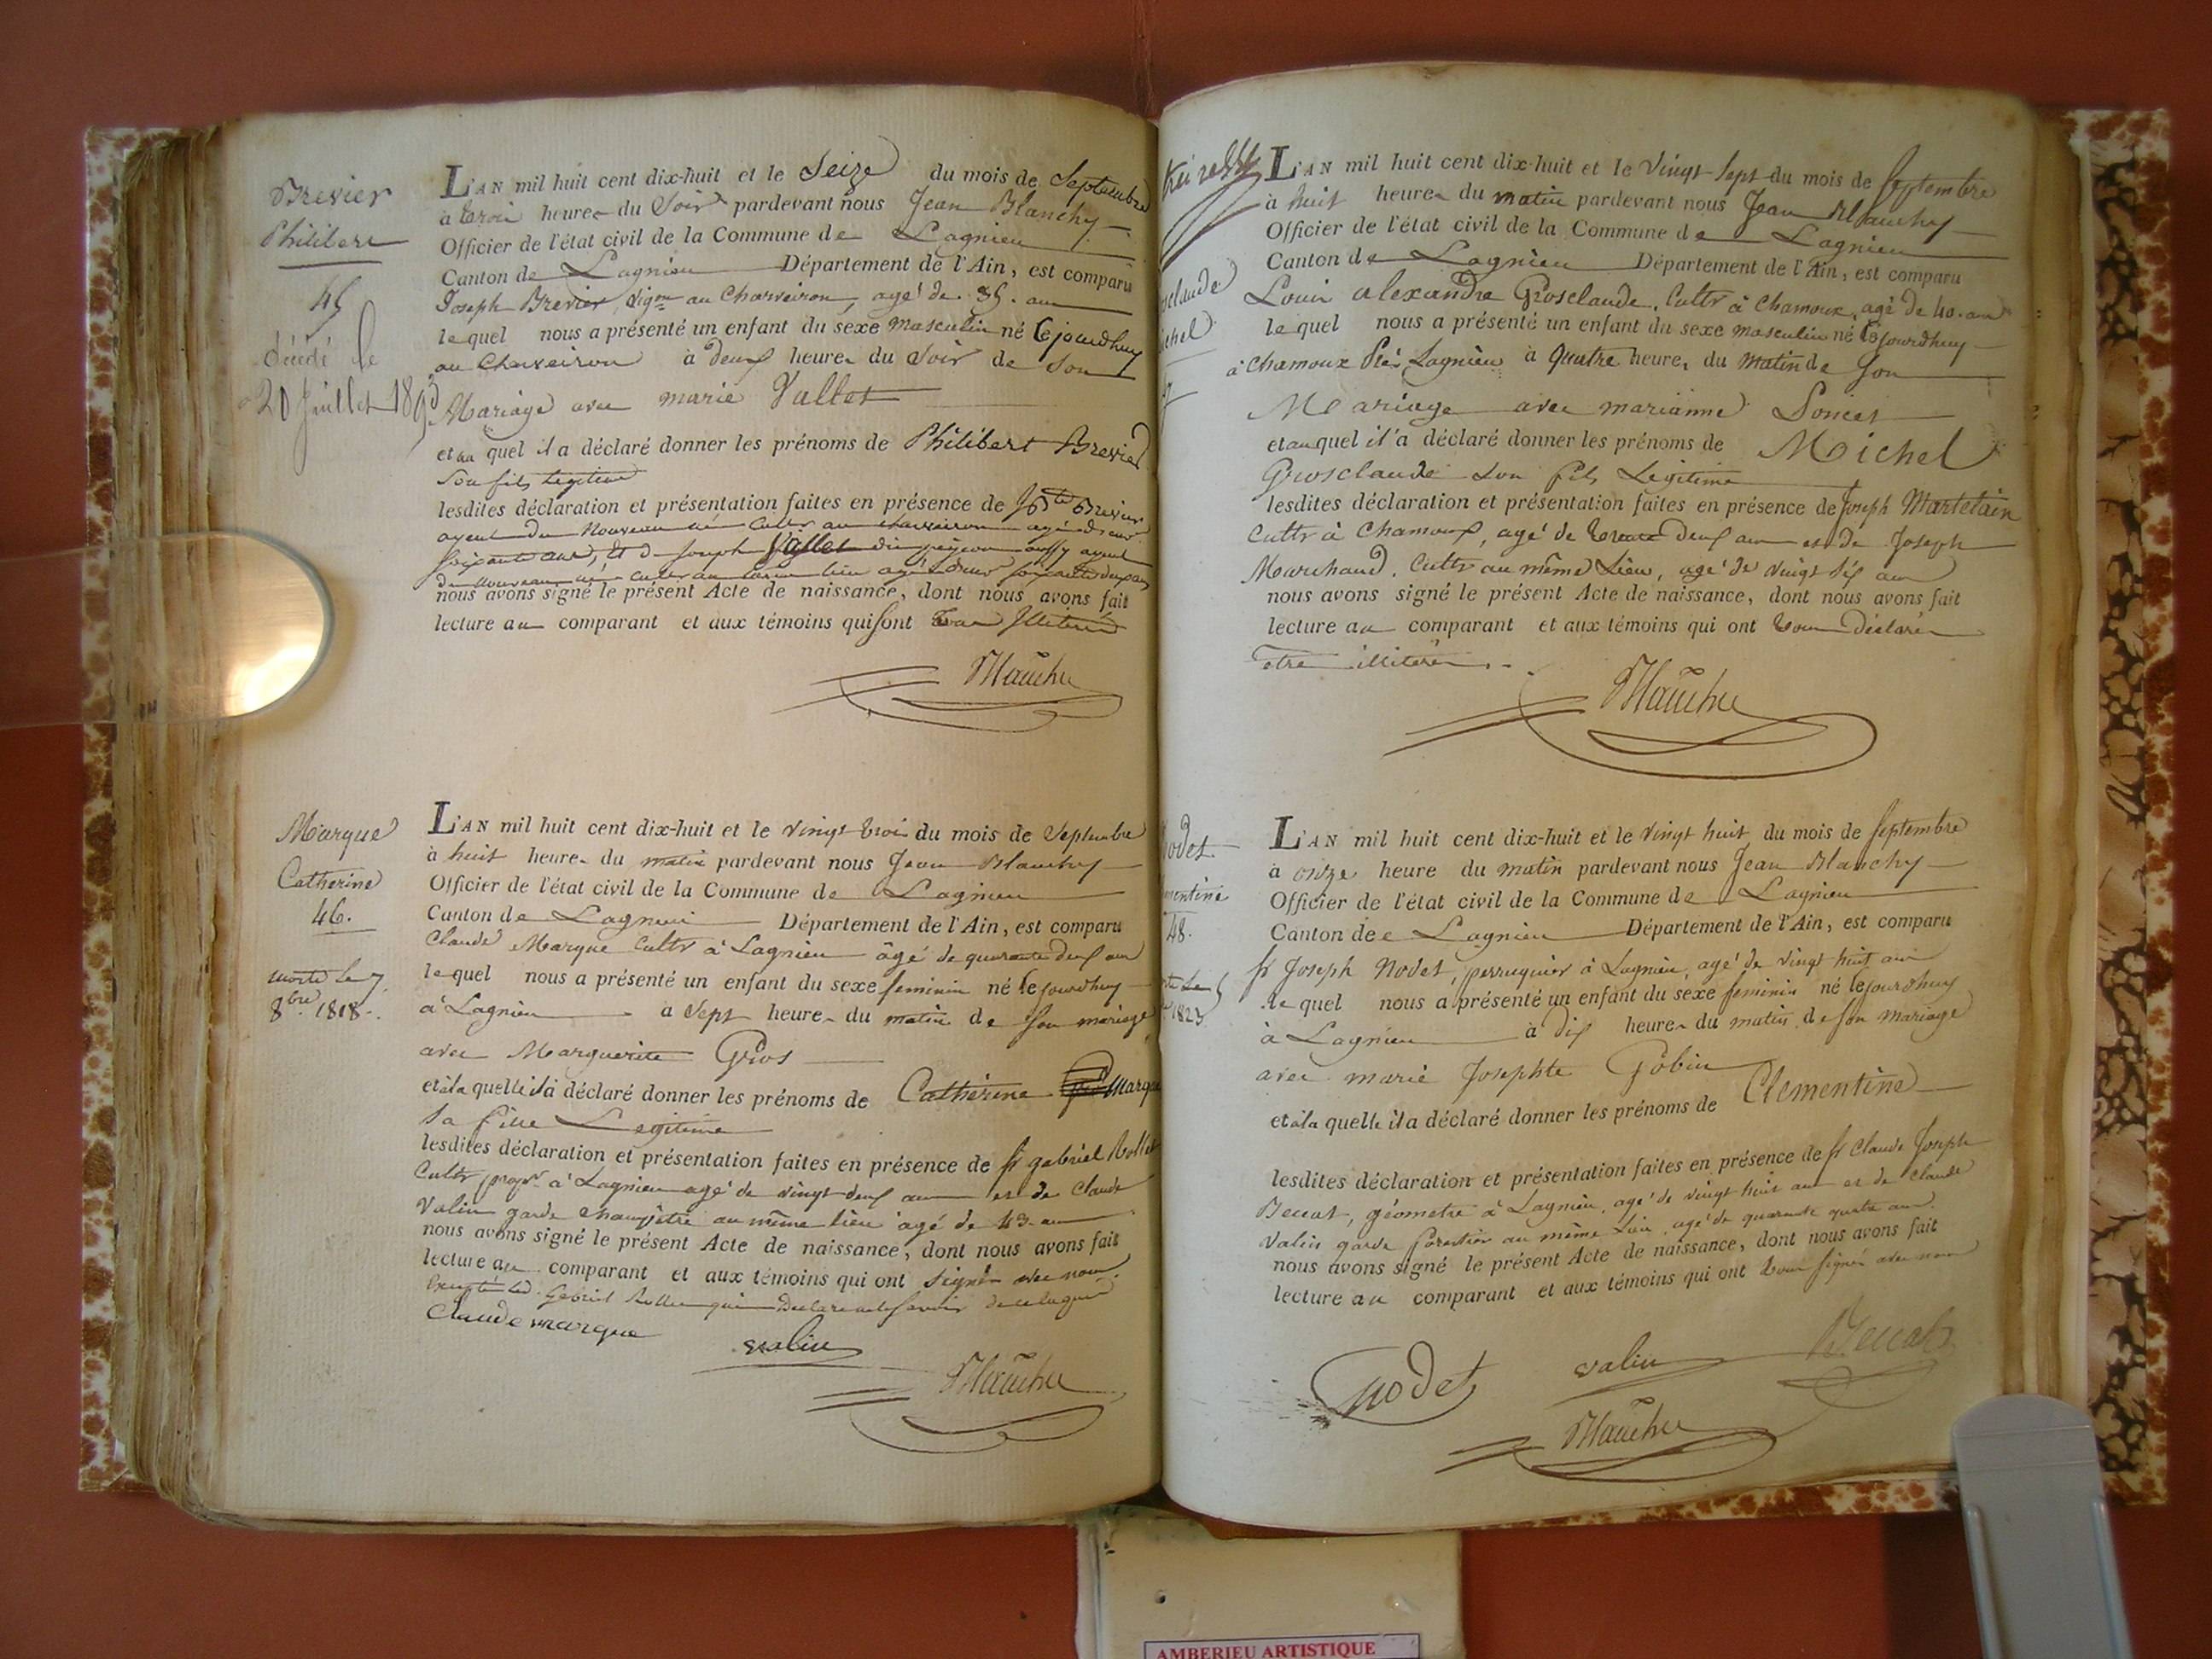 Brevier
Philibert
45
décédé le
20 Juillet 1893
L'AN mil huit cent dix-huit et le Seize du mois de Septembre
à trois heures du Soir pardevant nous Jean Blanchy
Officier de l'état civil de la Commune de Lagnieu
Canton de Lagnieu Département de l'Ain, est comparu
Joseph Brevier, vign au Charveiron, agé de 35. ans
le quel nous a présenté un enfant du sexe masculin né Cejourdhuy
au Charveiron à deux heures du Soir de Son
Mariage avec marie Vallet
et au quel il a déclaré donner les prénoms de Philibert Brevier
Son fils legitime
lesdites déclaration et présentation faites en présence de Brevier
ayeul du Nouveau né cultr au charveiron agé d
Soixante ans, et d Joseph Vallet dit pigeon aussy ayeul
du nouveau né cultr au même lieu agé
nous avons signé le présent Acte de naissance, dont nous avons fait
lecture au comparant et aux témoins qui sont tous Illiteré
Blanchy
Marque
Catherine
46.
morte le 7
8bre 1818.
L'AN mil huit cent dix-huit et le vingt trois du mois de Septembre
à huit heures du matin pardevant nous Jean Blanchy
Officier de l'état civil de la Commune de Lagnieu
Canton de Lagnieu Département de l'Ain, est comparu
Claude Marque Cultr à Lagnieu âgé de quarante deux ans
le quel nous a présenté un enfant du sexe feminin né Cejourdhuy
à Lagnieu à Sept heures du matin de Son mariage
avec Marguerite Gros
et à la quelle il a déclaré donner les prénoms de Catherine Marque
Sa fille Legitime
lesdites déclaration et présentation faites en présence de sr gabriel Rollet
Cultr propr à Lagnieu agé de vingt deux ans et de Claude
Valin garde champêtre au même lieu agé de 43. ans
nous avons signé le présent Acte de naissance, dont nous avons fait
lecture au comparant et aux témoins qui ont signés avec nous
Excepté led. Gabriel Rollet qui a Declaré ne le savoir de ce
Claude marque
valin
Blanchy
L'AN mil huit cent dix-huit et le Vingt-Sept du mois de Septembre
à huit heures du matin pardevant nous Jean Blanchy
Officier de l'état civil de la Commune de Lagnieu
Canton de Lagnieu Département de l'Ain, est comparu
Louis alexandre Grosclaude, Cultr à Chamoux, agé de 40. ans
le quel nous a présenté un enfant du sexe masculin né Cejourdhuy
à Chamoux Près Lagnieu à Quatre heures du Matin de Son
Mariage avec marianne Poncet
et au quel il a déclaré donner les prénoms de Michel
Grosclaude son fils Legitime
lesdites déclaration et présentation faites en présence de Joseph Martelain
Cultr à Chamoux, agé de trente deux ans et de Joseph
Marchand, Cultr au même Lieu, agé de vingt six ans
nous avons signé le présent Acte de naissance, dont nous avons fait
lecture au comparant et aux témoins qui ont tous Déclarés
être illiterés
Blanchy
48.
1823
L'AN mil huit cent dix-huit et le Vingt huit du mois de Septembre
à onze heure du matin pardevant nous Jean Blanchy
Officier de l'état civil de la Commune de Lagnieu
Canton de Lagnieu Département de l'Ain, est comparu
sr Joseph Nodet, perruquier à Lagnieu, agé de vingt huit ans
le quel nous a présenté un enfant du sexe feminin né Cejourdhuy
à Lagnieu à dix heures du matin de Son mariage
avec marie Josephte Gobin
et à la quelle il a déclaré donner les prénoms de Clementine
lesdites déclaration et présentation faites en présence de sr Claude Joseph
Beccat, géometre à Lagnieu, agé de vingt huit ans et de Claude
Valin garde forestier au même Lieu, agé de quarante quatre ans
nous avons signé le présent Acte de naissance, dont nous avons fait
lecture au comparant et aux témoins qui ont tous signés avec nous
Nodet
valin
Beccat
Blanchy
AMBERIEU ARTISTIQUE